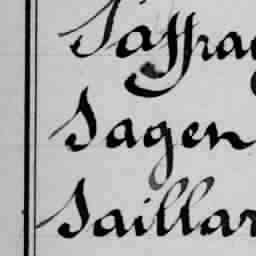 Saffrag
Sagen
Saillar